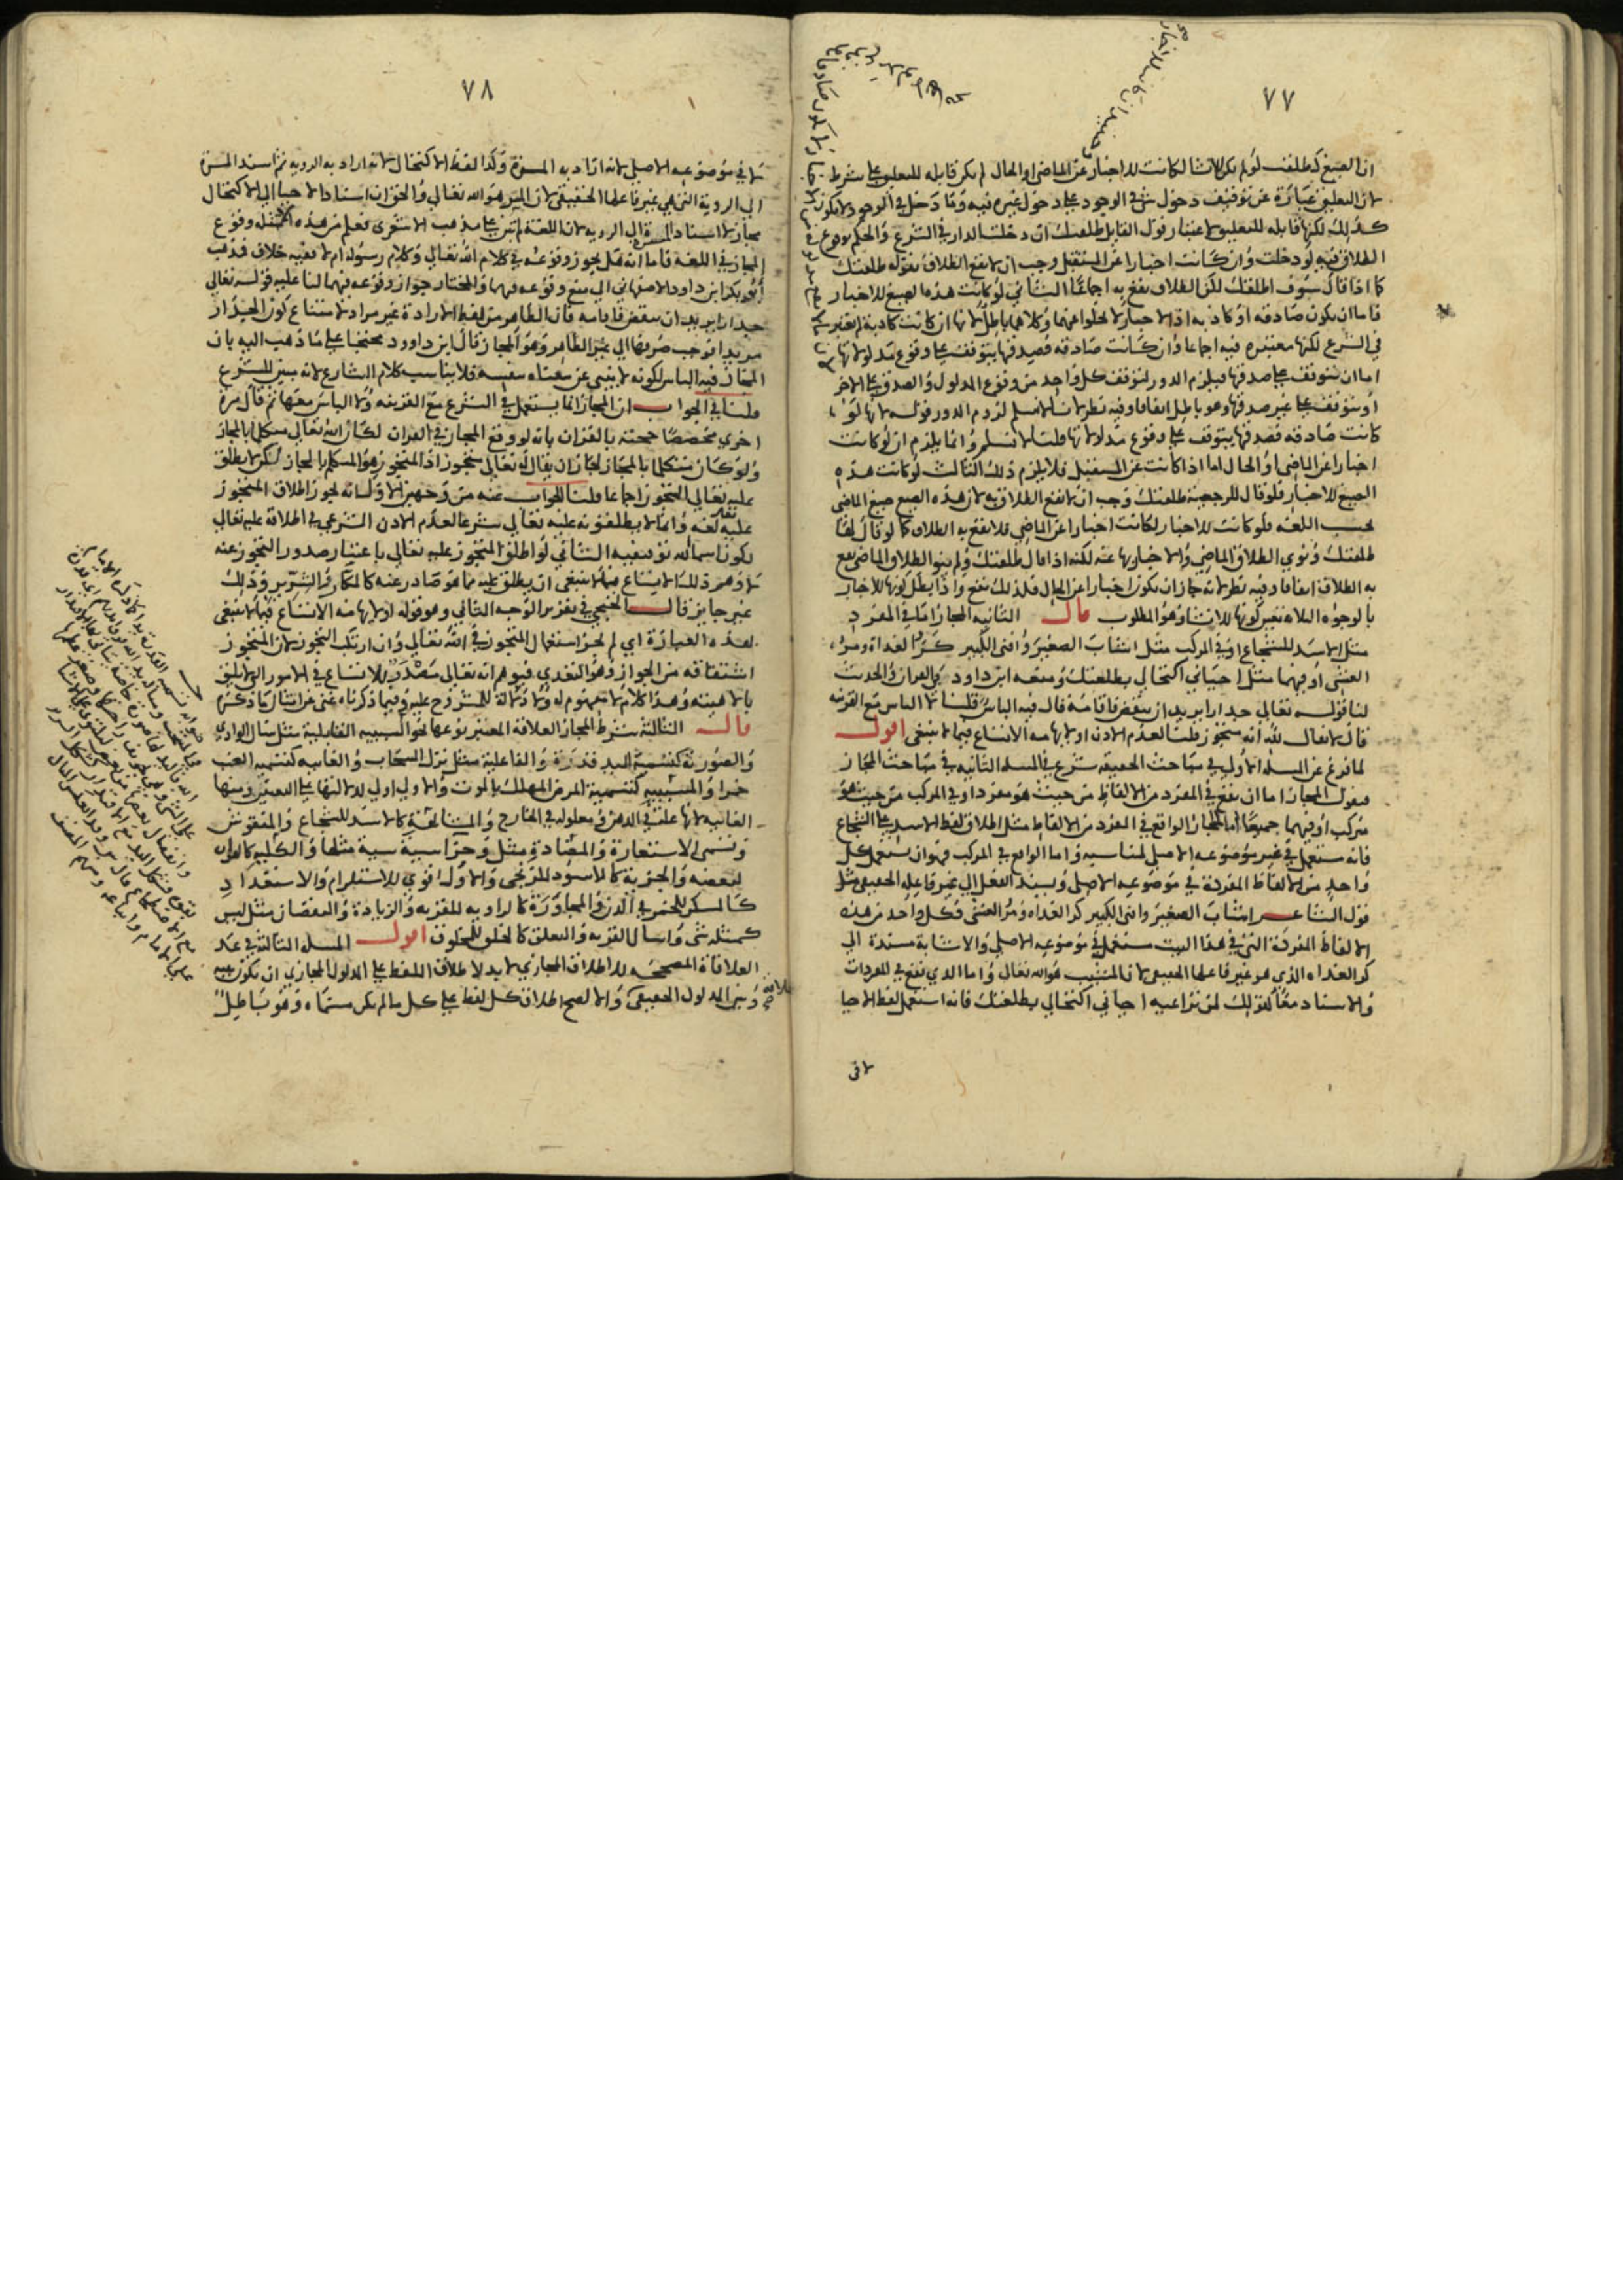 ٧٧
ان الصيغ كطلقت لو لم يكن للانشا لكانت للاخبار عن الماضى او الحال لم يكن قابله للتعليق على شرط
لان التعليق عبارة عن توقيف دخول شى في الوجود على دخول غيره فيه وما دخل في الوجود لا يكون
كذلك لكنها قابله للتعليق لاعتبار قول القايل طلقتك ان دخلت الدار في الشرع والحكم بوقوع
الطلاق فيه لو دخلت وان كانت اخبارا عن المستقبل وجب ان لا يقع الطلاق بقوله طلقتك
كما اذا قال سوف اطلقك لكن الطلاق يقع به اجماعا الثاني لو كانت هذه الصيغ للاخبار
فاما ان يكون صادقه او كاذبه اذ الاخبار لا يخلوا عنهما وكلاهما باطل لانها ان كانت كاذبة لم يعتبر
في الشرع لكنها معتبره فيه اجماعا وان كانت صادقه فصدقها يتوقف على وقوع مدلولاتها
اما ان يتوقف على صدقها فيلزم الدور لتوقف كل واحد من وقوع المدلول والصدق على الاخر
او يتوقف على غير صدقها وهو باطل اتفاقا وفيه نظر لانا لا نسلم لزوم الدور قوله لانها لو
كانت صادقه فصدقها يتوقف على وقوع مدلولاتها قلنا لا نسلم وانما يلزم ان لو كانت
اخبارا عن الماضى او الحال اما اذا كانت عن المستقبل فلا يلزم ذلك الثالث لو كانت هذه
الصيغ للاخبار فلو قال للرجعية طلقتك وجب ان لا يقع الطلاق به لان هذه الصيغ صيغ الماضى
بحسب اللغه فلو كانت للاخبار لكانت اخبارا عن الماضى فلا يقع به الطلاق كما لو قال لها
طلقتك ونوى الطلاق الماضى والاخبار بها عنه لكنه اذا قال طلقتك ولم ينو الطلاق الماضى يقع
به الطلاق اتفاقا وفيه نظر لانه جاز ان يكون اخبارا عن الحال فلذلك يقع واذا بطل كونها للاخبار
بالوجوه الثلاثه تعين كونها للانشا وهو المطلوب قال الثانيه المجاز اما في المفرد
مثل الاسد للشجاع او في المركب مثل اشاب الصغير وافنى الكبير كر الغداة ومر
العشى او فيهما مثل احياني اكتحالي بطلعتك ومنعه ابن داود في القران والحديث
لنا قوله تعالى جدارا يريد ان ينقض فاقامه قال فيه الباس قلنا لا الباس مع القرينه
قال لا يقال لله انه متجوز قلنا لعدم الاذن او لايهامه الاتساع فيما لا ينبغى اقول
لما فرغ عن المسله الاولى في مباحث الحقيقه شرع في المسله الثانيه في مباحث المجاز
فنقول المجاز اما ان يقع في المفرد من الالفاظ من حيث هو مفرد او في المركب من حيث هو
مركب او فيهما جميعا اما المجاز الواقع في المفرد من الالفاظ مثل اطلاق لفظ الاسد على الشجاع
فانه مستعمل في غير موضوعه الاصلى لمناسبه واما الواقع في المركب فهو ان يستعمل كل
واحد من الالفاظ المفردة في موضوعه الاصلى ويسند الفعل الى غير فاعله الحقيقى مثل
قول الشاعر اشاب الصغير وافنى الكبير كر الغداه ومر العشى فكل واحد من هذه
الالفاظ المفردة التى في هذا البيت مستعمل في موضوعه الاصلي والاشابة مسندة الى
كر الغداه الذى هو غير فاعلها الحقيقى لان المشيب هو الله تعالى واما الذي يقع في المفردات
والاسناد معا كقولك لمن تراعيه احياني اكتحالي بطلعتك فانه استعمل لفظ الاحيا
لا في
٧٨
لا في موضوعه الاصلى لانه اراد به المسرة وكذا لفظ الاكتحال لانه اراد به الرويه ثم اسند المسرة
الى الروية التى هي غير فاعلها الحقيقى لان المسر هو الله تعالى والحق ان اسناد الاحيا الى الاكتحال
مجاز لا اسناد المسرة الى الرويه لان اللغة لم تبن على مذهب الاشعرى فعلم من هذه الامثله وقوع
المجاز في اللغة فاما انه هل يجوز وقوعه في كلام الله تعالى وكلام رسوله ام لا ففيه خلاف فذهب
ابو بكر ابن داود الاصفهاني الى منع وقوعه فيهما والمختار جواز وقوعه فيهما لنا عليه قوله تعالى
جدارا يريد ان ينقض فاقامه فان الظاهر من لفظ الارادة غير مراد لامتناع كون الجدار
مريدا فوجب صرفها الى غير الظاهر وهو المجاز قال ابن داوود محتجا على ما ذهب اليه بان
المجاز فيه الباس لكونه لا ينبى عن معناه بنفسه فلا يناسب كلام الشارع لانه مبين للشرع
قلنا في الجواب ان المجاز انما يستعمل في الشرع مع القرينه ولا الباس معها ثم قال مرة
اخرى مخصصا حجته بالقران بانه لو وقع المجاز في القران لكان الله تعالى متكلما بالمجاز
ولو كان متكلما بالمجاز لجاز ان يقال له تعالى متجوز اذ المتجوز هو المتكلم بالمجاز لكن لا يطلق
عليه تعالى المتجوز اجماعا قلنا للجواب عنه من وجهين الاول انه يجوز اطلاق المتجوز
عليه لغه وانما لا يطلقونه عليه تعالى شرعا لعدم الاذن الشرعي في اطلاقه عليه تعالى
لكون اسمائه توقيفيه الثاني لو اطلق المتجوز عليه تعالى باعتبار صدور التجوز عنه
لاوهم ذلك الاتساع فيما لا ينبغى ان يطلق عليه مما هو صادر عنه كالمكار والشرير وذلك
غير جايز قال الخنجي في تقرير الوجه الثاني وهو قوله او لايهامه الاتساع فيما لا ينبغى
بهذه العبارة اي لم يجز استعمال المتجوز في الله تعالى وان ارتكب التجوز لان المتجوز
اشتقاقه من الجواز وهو التعدى فيوهم انه تعالى مصدر للاتساع في الامور التى لا يليق
بالاهيته وهذا كلام لا مفهوم له ولا دلالة للمشروح عليه وفيما ذكرناه غنى عن امثال ما ذكره
قال الثالثة شرط المجاز العلاقة المعتبر نوعها نحو السببيه القابلية مثل سال الوادي
والصورية كتسمية اليد قدرة والفاعلية مثل نزل السحاب والغائيه كتسمية العنب
خمرا والمسببيه كتسمية المرض المهلك بالموت والاولى اولى لدلالتها على التعيين ومنها
الغائيه لانها علة في الذهن ومعلوله في الخارج والمشابهة كالاسد للشجاع والمنقوش
وتسمى الاستعارة والمضادة مثل وجزا سيئة سيئة مثلها والكلية كالقران
لبعضه والجزئية كالاسود للزنجى والاول اقوى للاستلزام والاستعداد
كالمسكر للخمر في الدن والمجاورة كالراويه للقربه والزيادة والنقصان مثل ليس
كمثله شى واسال القريه والتعلق كالخلق للمخلوق اقول المسله الثالثة في عد
العلاقة المصححه للاطلاق المجازي لا بد لاطلاق اللفظ على المدلول المجازي ان تكون بينه
وبين المدلول الحقيقى والا لصح اطلاق كل لفظ على كل ما لم يكن مسماه وهو باطل